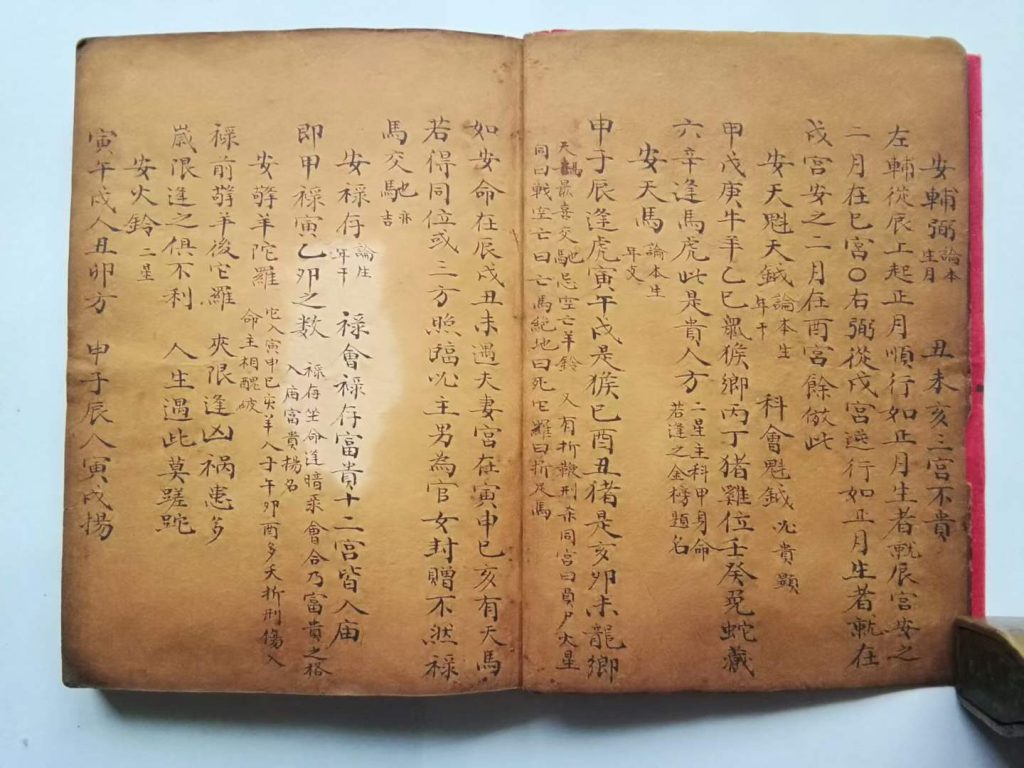 安輔弼 論本生月 丑未亥三宮不貴
左輔從辰上起正月順行如正月生者就辰宮安之
二月在巳宮〇右弼從戌宮逆行如正月生者就在
戌宮安之二月在酉宮餘倣此
安天魁天鉞 論本生年干 科會魁鉞必貴顯
甲戊庚牛羊乙巳鼠猴鄉丙丁猪雞位壬癸兔蛇藏
六辛逢馬虎此是貴人方 二星主科甲身命若逢之金榜題名
安天馬 論本生年支
申子辰逢虎寅午戌是猴巳酉丑猪是亥卯未龍鄉
天馬最喜交馳忌空亡羊鈴 又有折鞭刑杀同宮曰負尸火星
同曰戰空亡曰亡馬絕地曰死它羅曰折足馬
如安命在辰戌丑未遇夫妻宮在寅申巳亥有天馬
若得同位或三方照臨必主男為官女封贈不然祿
馬交馳亦吉
安祿存 論生年干 祿會祿存富貴十二宮皆入庙
即甲祿寅乙卯之数 祿存坐命逢暗祿會合乃富貴之格
入庙富貴揚名
安擎羊陀羅 它入寅申巳亥羊入子午卯酉多夭折刑傷入
命主相醒破
祿前擎羊後它羅 夾限逢凶禍患多
歲限逢之俱不利 人生遇此莫蹉跎
安火鈴 二星
寅午戌人丑卯方 申子辰人寅戌揚